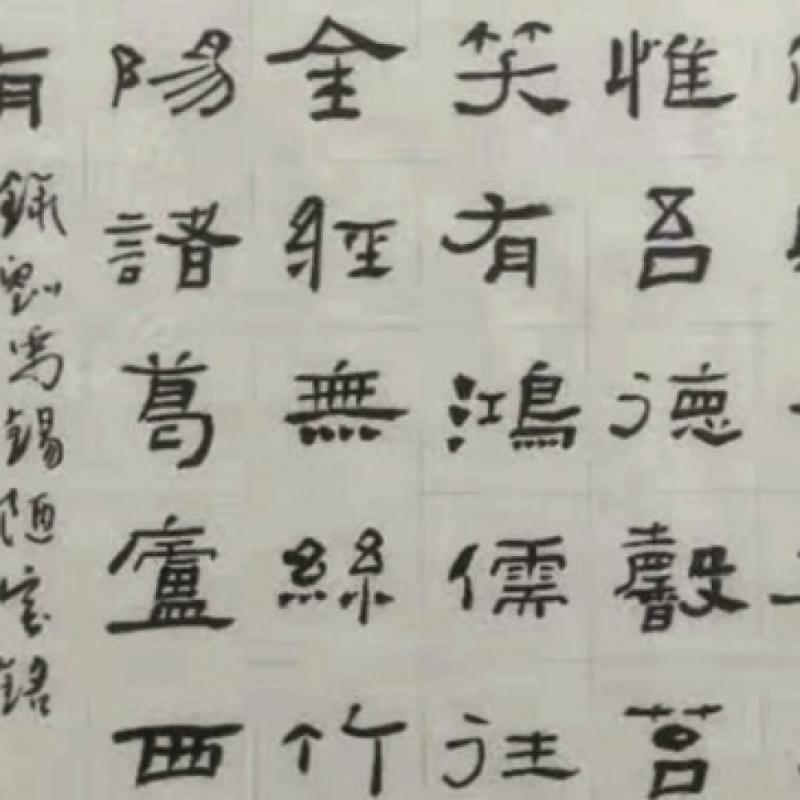 惟吾德馨苔
笑有鴻儒往
金經無絲竹
陽諸葛廬西
有
錄劉禹錫陋室銘